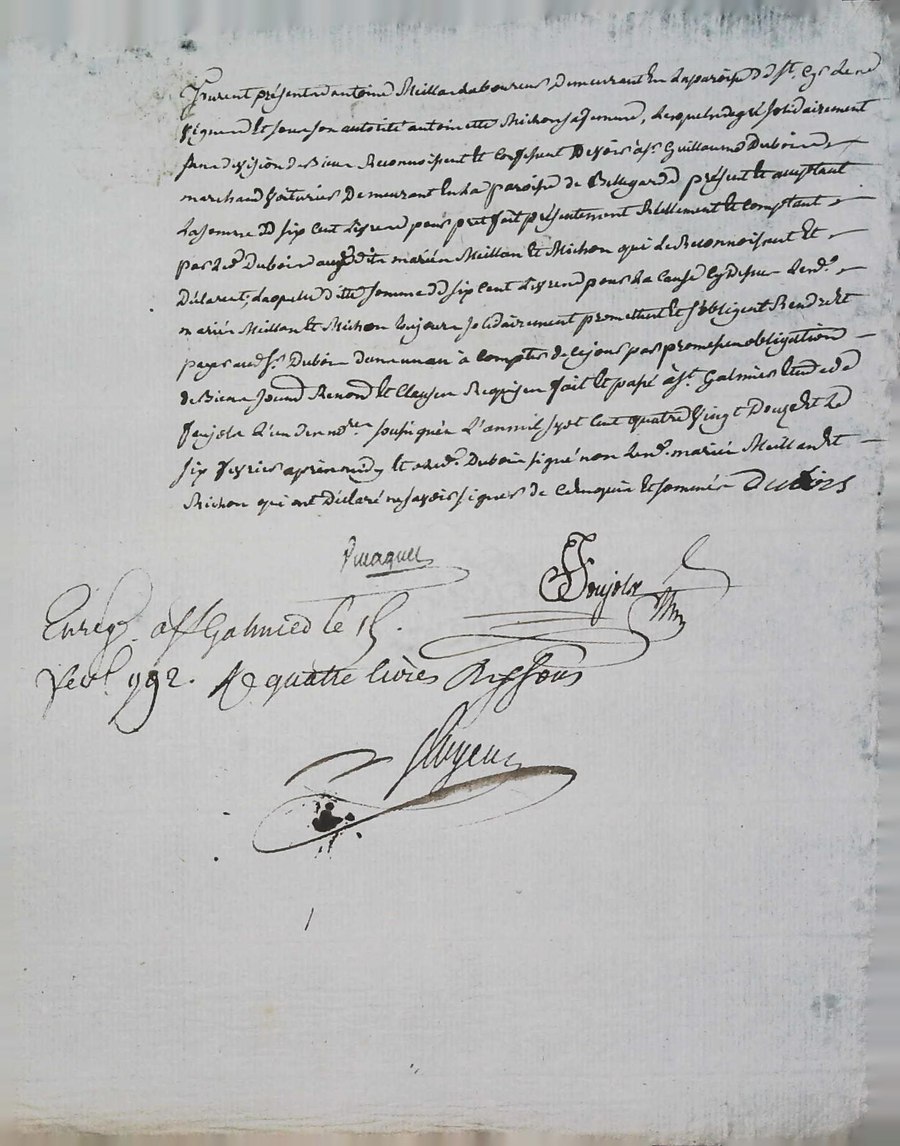 Furent présents antoine Meillan laboureur demeurant en la paroisse de St. Cyr les
vignes et sous son autorité antoinette Michon sa femme, lesquels de gré solidairement
sans division de Biens Reconnoissent et Confessent Devoir à Sr. Guillaume Dubois
marchand voiturier Demeurant en la paroisse de Bellegarde présent et acceptant
La somme de six cent Livres pour pret fait présentement Réellement et Comptant
par led. Dubois auxdits mariés Meillan et Michon qui Le Reconnoissent et
Déclarent; Laquelle ditte somme de six cent Livres pour La Cause Cy Dessus Lesd.
mariés Meillan et Michon toujours solidairement promettent et s'obligent Rendre et
payer aud. Sr. Dubois dans un an à Compter de Ce jour par promesse obligation
de Biens soumis Renond. et Clauses Requises fait et passé à St. Galmier Etude de
Poujola L'un des nores. soussignés L'an mil sept Cent quatre vingt Douze et Le
six fevrier après midy et a led. Dubois signé non Lesd. mariés Meillan et
Michon qui ont Déclaré ne savoir signer de Ce Enquis et sommés Dubois
Poujola
Enreg. a St Galmied le 15.
fevr. 1792. R quatre livres dix sous